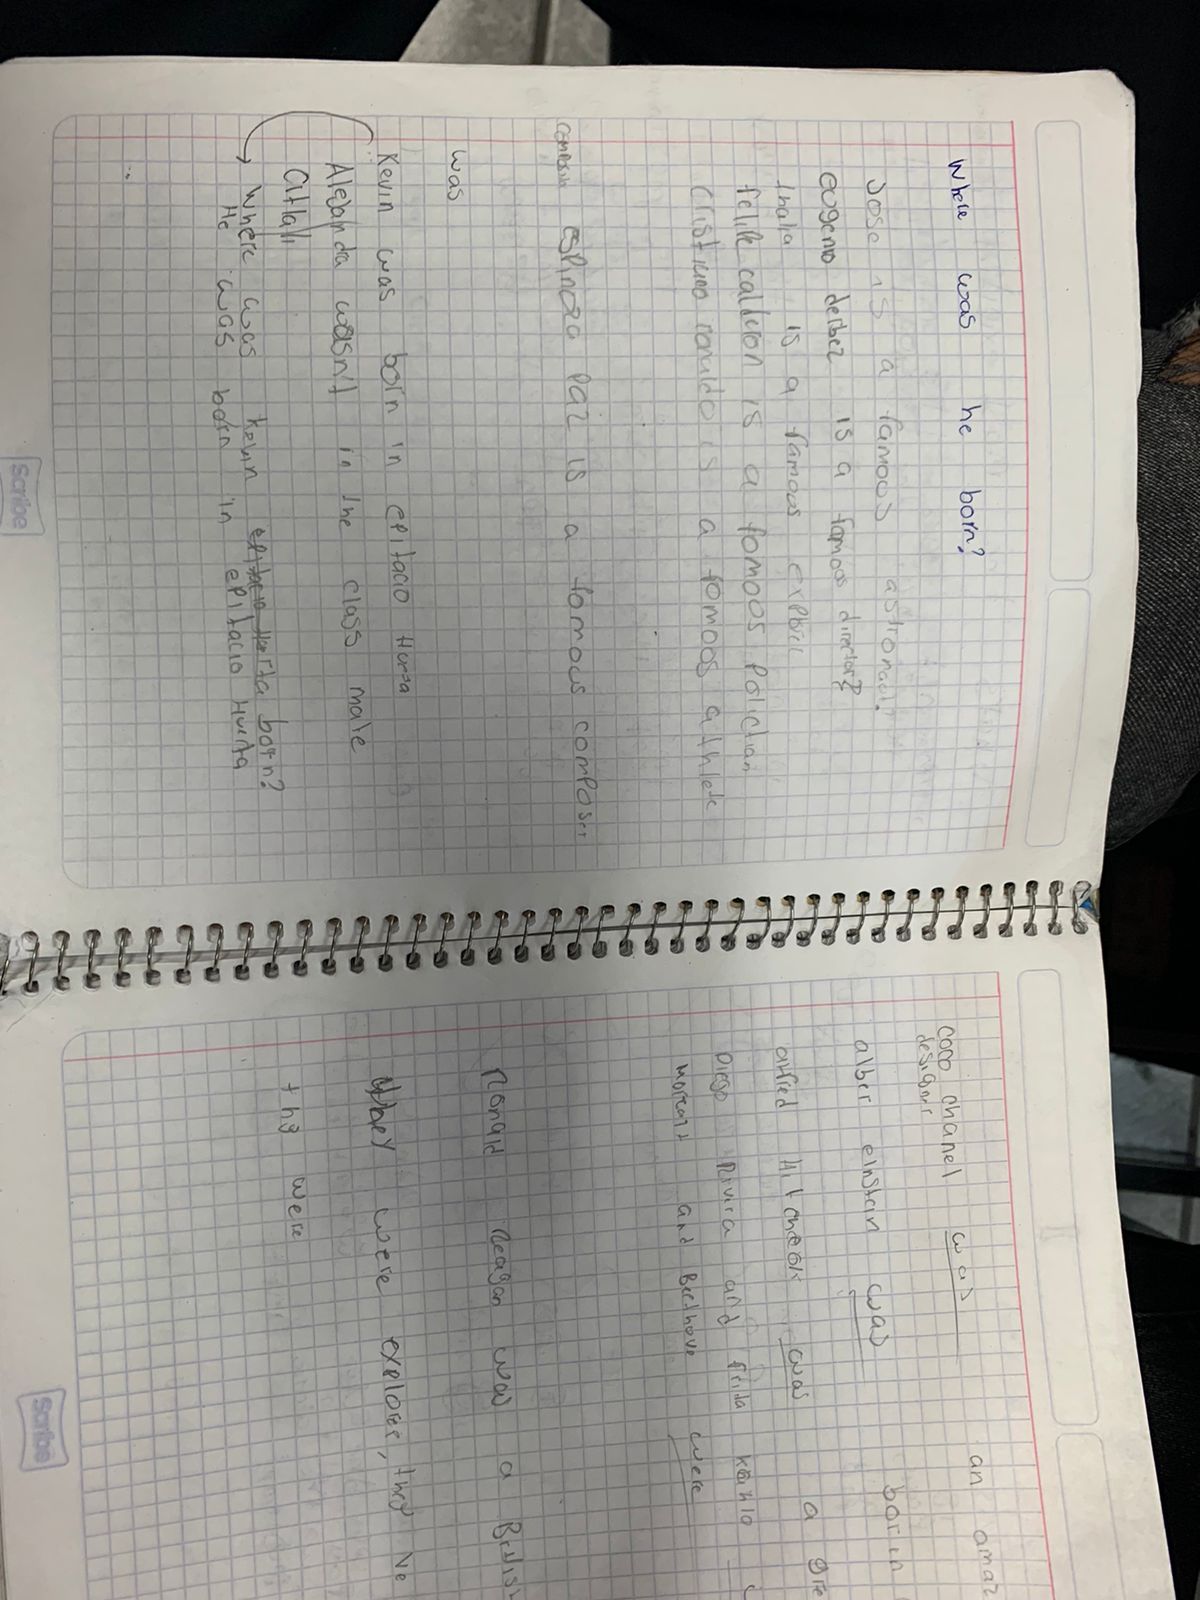 Where was he born?
Jose is a famoos astronaut.
eugenio derbez is a famoos director?
thalia is a famoos
felipe calderon is a fomoos Politian
cristiano ronaldo is a fomoos athlete
espinoza Paz is a fomous composer
was
Kevin was born in epitacio Huerta
Alejandra wasn't in the class
Citlali
Where was kevin epitacio Huerta born?
He was born in epitacio Huerta
Scribe
coco chanel was an amaz
designer
alber einstein was born
alfred Hitchcok was a gre
Diego Rivira and frida Kahlo
and Beethove were
Ronald Reagan was a British
they were explorer, they Ne
thy were
Scribe